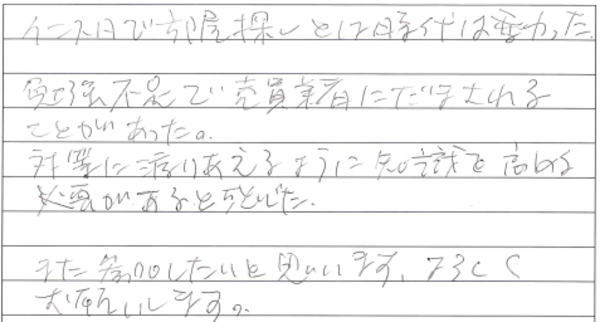 インスタで部屋探しとは時代は変わった。
勉強不足で売買業者にだまされる
ことがあった。
対等に渡りあえるように知識を高める
必要があると感じた。
また参加したいと思います、よろしく
お願いします。